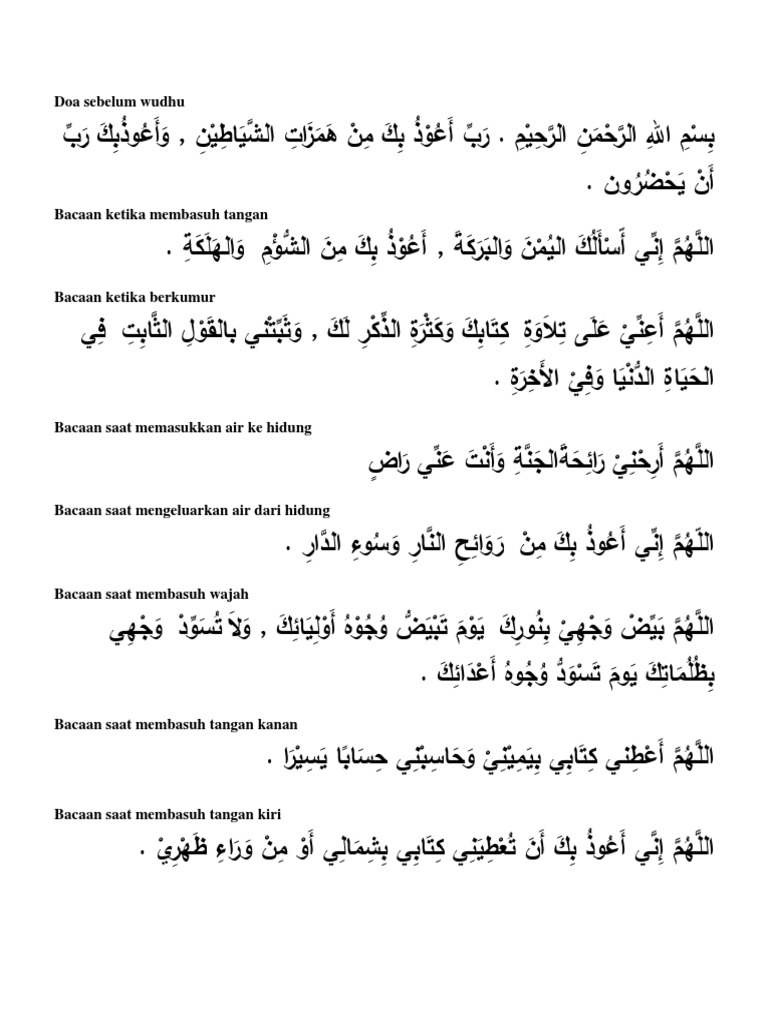 Doa sebelum wudhu
بِسْمِ اللهِ الرَّحْمَنِ الرَّحِيْمِ . رَبِّ أَعُوْذُ بِكَ مِنْ هَمَزَاتِ الشَّيَاطِيْنِ , وَأَعُوذُبِكَ رَبِّ
أَنْ يَحْضُرُون .
Bacaan ketika membasuh tangan
اللَّهُمَّ إِنِّي أّسْأَلُكَ اليُمْنَ وَالبَرَكَةَ , أَعُوْذُ بِكَ مِنَ الشُّؤْمِ وَالهَلَكَةِ .
Bacaan ketika berkumur
اللَّهُمَّ أَعِنِّيْ عَلَى تِلاَوَةِ كِتَابِكَ وَكَثْرَةِ الذِّكْرِ لَكَ , وَثَبِّتْني بالقَوْلِ الثَّابِتِ فِي
الحَيَاةِ الدُّنْيَا وَفِيْ الأَخِرَةِ .
Bacaan saat memasukkan air ke hidung
اللَّهُمَّ أَرِحْنِيْ رَائِحَةَالجَنَّةِ وَأَنْتَ عَنِّي رَاضٍ
Bacaan saat mengeluarkan air dari hidung
اللّهُمَّ إِنِّي أَعُوذُ بِكَ مِنْ رَوَائِحِ النَّارِ وَسُوءِ الدَّارِ .
Bacaan saat membasuh wajah
اللَّهُمَّ بَيِّضْ وَجْهِيْ بِنُورِكَ يَوْمَ تَبْيَضُّ وُجُوْهُ أَوْلِيَائِكَ , وَلاَ تُسَوِّدْ وَجْهِي
بِظُلُمَاتِكَ يَومَ تَسْوَدُّ وُجُوهُ أَعْدَائِكَ .
Bacaan saat membasuh tangan kanan
اللَّهُمَّ أَعْطِني كِتَابِي بِيَمِيْنِيْ وَحَاسِبْنِي حِسَابًا يَسِيْرَا .
Bacaan saat membasuh tangan kiri
اللَّهُمَّ إِنَّي أَعُوذُ بِكَ أَنَ تُعْطِيَنِي كِتَابِي بِشِمَالِي أَوْ مِنْ وَرَاءِ ظَهْرِيْ .